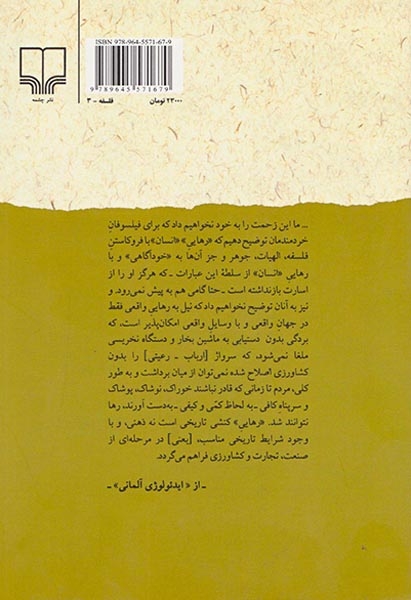 ISBN 978-964-5571-67-9
9 789645 571679
نشر چشمه
فلسفه - ۳
۲۳۰۰۰ تومان
... ما این زحمت را به خود نخواهیم داد که برای فیلسوفانِ
خردمندمان توضیح دهیم که «رهایی» «انسان» با فروکاستن
فلسفه، الهیات، جوهر و جز آن‌ها به «خودآگاهی» و با
رهایی «انسان» از سلطهٔ این عبارات ـ که هرگز او را از
اسارت بازنداشته است ـ حتا گامی هم به پیش نمی‌رود. و
نیز به آنان توضیح نخواهیم داد که نیل به رهایی واقعی فقط
در جهانِ واقعی و با وسایل واقعی امکان‌پذیر است، که
بردگی بدون دستیابی به ماشین بخار و دستگاه نخریسی
ملغا نمی‌شود، که سرواژ [ارباب ـ رعیتی] را بدون
کشاورزی اصلاح شده نمی‌توان از میان برداشت و به طور
کلی، مردم تا زمانی که قادر نباشند خوراک، نوشاک، پوشاک
و سرپناه کافی ـ به لحاظ کمّی و کیفی ـ به‌دست آورند، رها
نتوانند شد. «رهایی» کنشی تاریخی است نه ذهنی، و با
وجود شرایط تاریخی مناسب، [یعنی] در مرحله‌ای از
صنعت، تجارت و کشاورزی فراهم می‌گردد.
ـ از «ایدئولوژی آلمانی» ـ